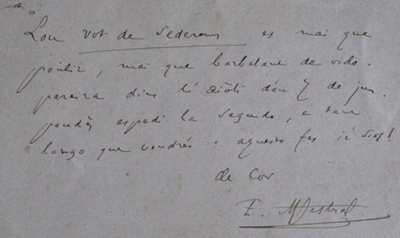 Lou vot de Sederoun es mai que
poulit, mai que barbelant de vido.
pareira dins l'aiòli dóu 7 de jun.
poudès espedi la seguido, e tant
longo que voudrés : aquesto fes ié sias!
de Cor
F. Mistral